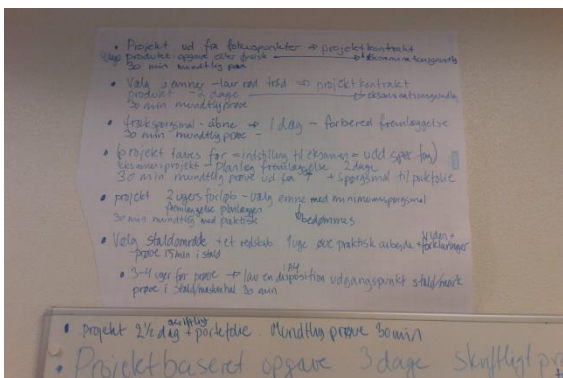 • Projekt ud fra fokuspunkter → projektkontrakt
produkt-opgave eller
30 min mundtlig prøve
• Vælg 3 emner - lav rød tråd ⇒ projektkontrakt
produkt - 2 dage
30 min mundtlig prøve
• - åbne → 1 dag - forbered fremlæggelse
30 min mundtlig prøve -
• (projekt laves før = indstilling til eksamen = udd spec fag)
- planlæg fremlæggelse 2 dage
30 min mundtlig prøve ud fra ↑ + spørgsmål til
• projekt 2 ugers forløb - vælg emne med minimumsspørgsmål
fremlæggelse planlægges
30 min mundtlig med praktisk bedømmes
• Vælg staldområde + et redskab 1 uge øve praktisk arbejde + viden + forklaringer
- prøve 15 min i stald
• 3-4 uger før prøve → lav en A4 disposition udgangspunkt stald/mark
prøve i stald/ 30 min
• projekt 2½ dag skriftligt + portefolie. Mundtlig prøve 30 min
• Projektbaseret opgave 3 dage skriftligt